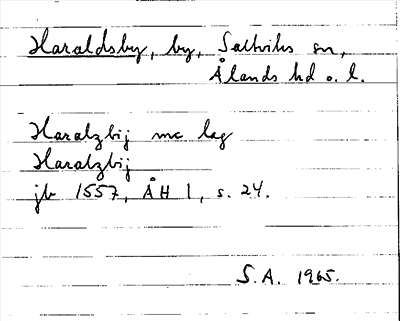 Haraldsby, by, Saltviks sn,
Ålands hd o. l.
Haralzbij mc lag
Haralzbij
jb 1557, ÅH 1, s. 24.
S.A. 1965.